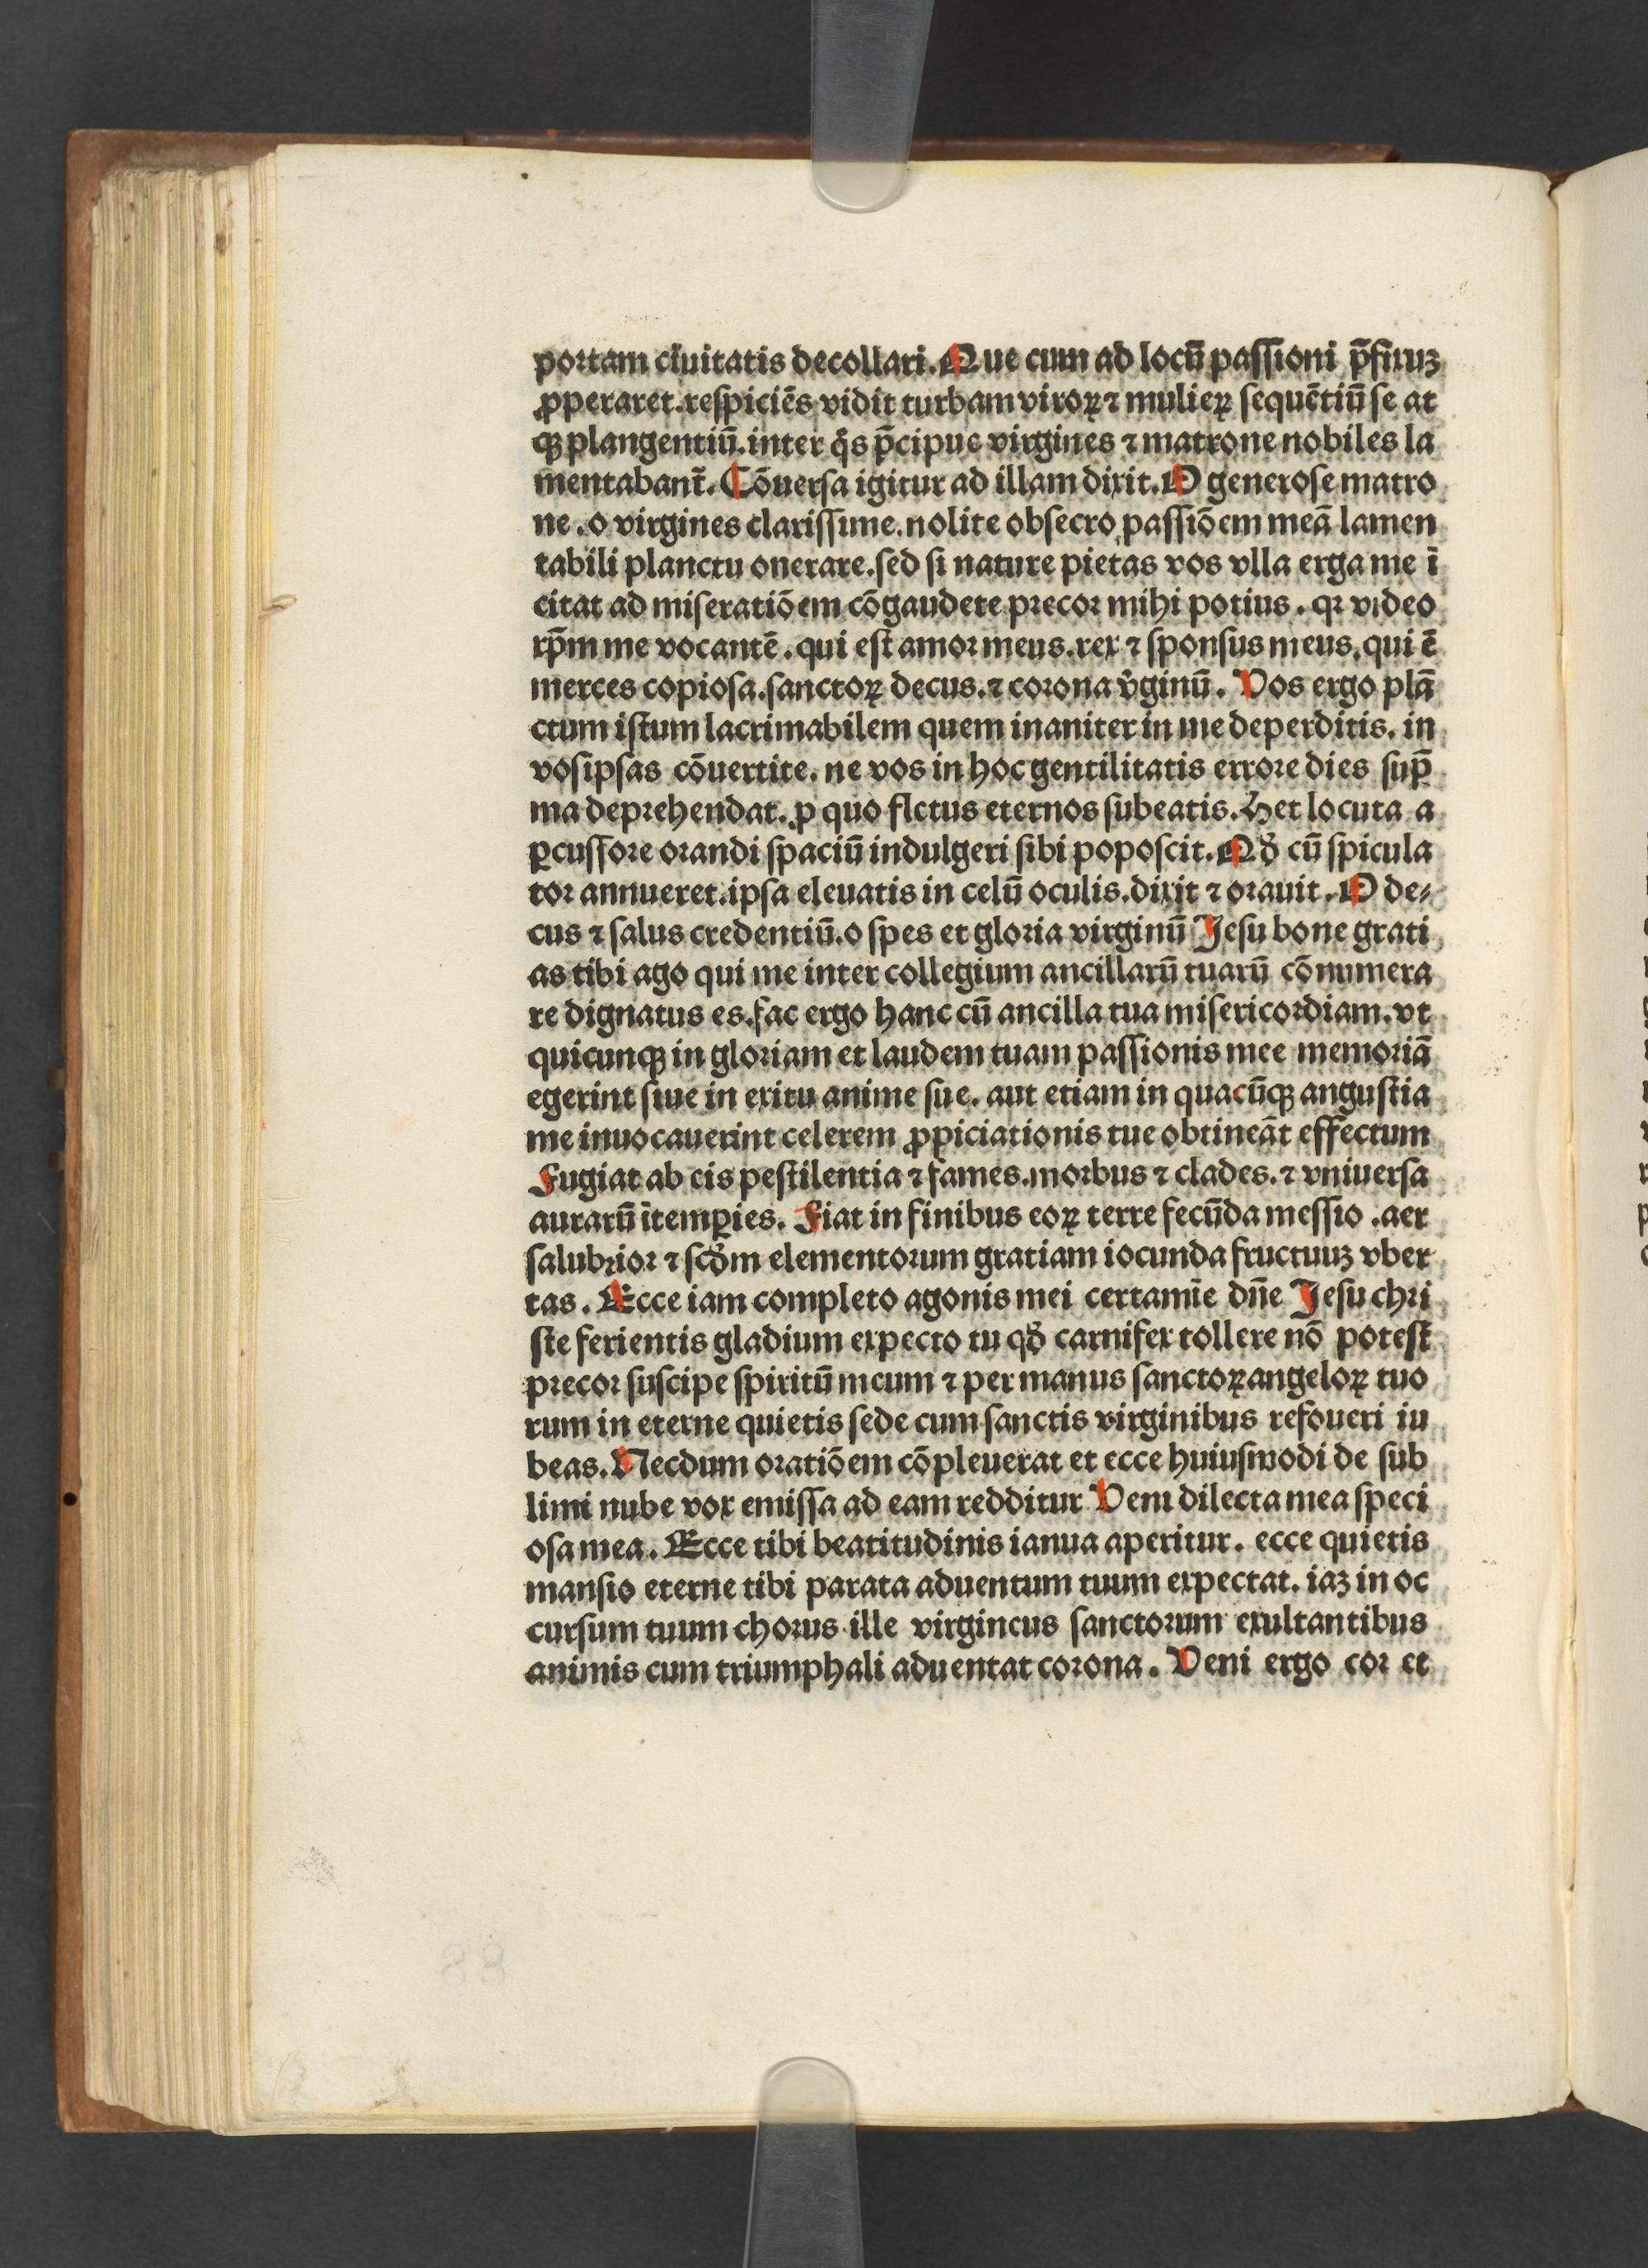 portam ciuitatis decollari. Que cum ad locū passioni p̄fixuꝫ
ꝓperaret. respiciēs vidit turbam viroꝝ ⁊ mulieꝝ sequētiū se at
qꝫ plangentiū. inter q̊s p̄cipue virgines ⁊ matrone nobiles la
mentabant̄. Cōuersa igitur ad illam dixit. O generose matro
ne. o virgines clarissime. nolite obsecro passiōem meā lamen
tabili planctu onerare. sed si nature pietas vos vlla erga me ī
citat ad miseratiōem cōgaudete precor mihi potius. qꝛ video
xp̄m me vocantē. qui est amor meus. rex ⁊ sponsus meus. qui ē
merces copiosa. sanctoꝝ decus. ⁊ corona v̓ginū. Vos ergo plā
ctum istum lacrimabilem quem inaniter in me deperditis. in
vosipsas cōuertite. ne vos in hoc gentilitatis errore dies sup̄
ma deprehendat. ꝓ quo fletus eternos subeatis. Hec locuta a
ꝑcussore orandi spaciū indulgeri sibi poposcit. Qđ cū spicula
tor annueret. ipsa eleuatis in celū oculis. dixit ⁊ orauit. O de⸗
cus ⁊ salus credentiū. o spes et gloria virginū Jesu bone grati
as tibi ago qui me inter collegium ancillarū tuarū cōnumera
re dignatus es. fac ergo hanc cū ancilla tua misericordiam. vt
quicunqꝫ in gloriam et laudem tuam passionis mee memoriā
egerint siue in exitu anime sue. aut etiam in quacūqꝫ angustia
me inuocauerint celerem ꝓpiciationis tue obtineāt effectum
Fugiat ab eis pestilentia ⁊ fames. morbus ⁊ clades. ⁊ vniuersa
aurarū ītemꝑies. Fiat in finibus eoꝝ terre fecūda messio. aer
salubrior ⁊ scđm elementorum gratiam iocunda fructuuꝫ vber
tas. Ecce iam completo agonis mei certamīe dn̄e Jesu chri
ste ferientis gladium expecto tu qđ carnifex tollere nō potest
precor suscipe spiritū meum ⁊ per manus sanctoꝝ angeloꝝ tuo
rum in eterne quietis sede cum sanctis virginibus refoueri iu
beas. Necdum oratiōem cōpleuerat et ecce huiusmodi de sub
limi nube vox emissa ad eam redditur Veni dilecta mea speci
osa mea. Ecce tibi beatitudinis ianua aperitur. ecce quietis
mansio eterne tibi parata aduentum tuum expectat. iaꝫ in oc
cursum tuum chorus ille virgineus sanctorum exultantibus
animis cum triumphali aduentat corona. Veni ergo cor et